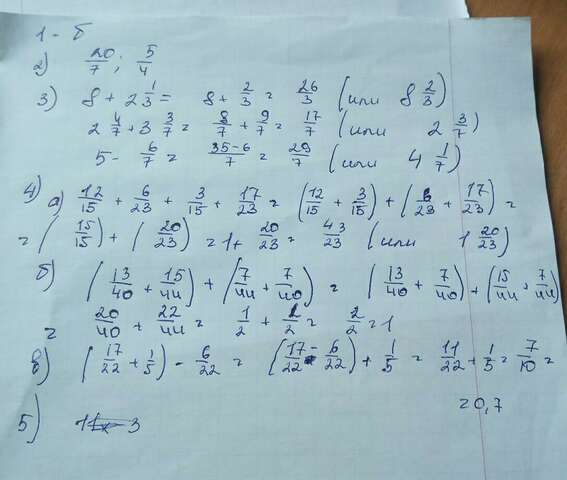 1 - б
2) 20/7 ; 5/4
3) 8 + 2 1/3 = 8 + 2/3 = 26/3 (или 8 2/3)
2 4/7 + 3 3/7 = 8/7 + 9/7 = 17/7 (или 2 3/7)
5 - 6/7 = 35-6/7 = 29/7 (или 4 1/7)
4) а) 12/15 + 6/23 + 3/15 + 17/23 = (12/15 + 3/15) + (6/23 + 17/23) =
= (15/15) + (20/23) = 1 + 20/23 = 43/23 (или 1 20/23)
б) (13/40 + 15/44) + (7/44 + 7/40) = (13/40 + 7/40) + (15/44 + 7/44)
= 20/40 + 22/44 = 1/2 + 1/2 = 2/2 = 1
в) (17/22 + 1/5) - 6/22 = (17/22 - 6/22) + 1/5 = 11/22 + 1/5 = 7/10 =
= 0,7
5) 3